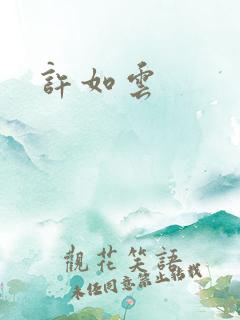 許如雲
觀花笑語
未经同意禁止转载